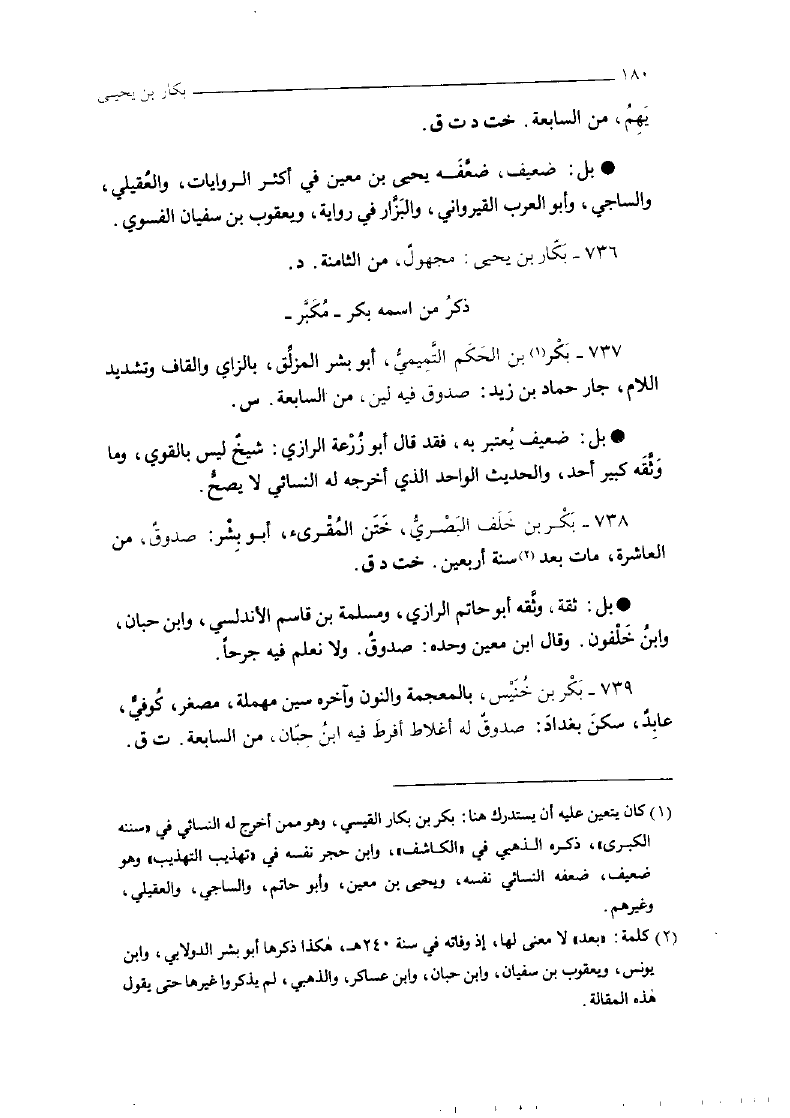 ١٨٠ بكار بن يحيى
يَهِمُ، من السابعة. خت د ت ق.
● بل: ضعيف، ضعَّفَه يحيى بن معين في أكثر الروايات، والعُقيلي،
والساجي، وأبو العرب القيرواني، والبَزَّار في رواية، ويعقوب بن سفيان الفسوي.
٧٣٦ ـ بَكَّار بن يحيى: مجهولٌ، من الثامنة. د.
ذكرُ من اسمه بكر ـ مُكَبَّر ـ
٧٣٧ ـ بَكْر(١) بن الحَكَم التَّمِيميُّ، أبو بشر المزلِّق، بالزاي والقاف وتشديد
اللام، جار حماد بن زيد: صدوق فيه لين، من السابعة. س.
● بل: ضعيف يُعتبر به، فقد قال أبو زُرْعة الرازي: شيخٌ ليس بالقوي، وما
وَثَّقَه كبير أحد، والحديث الواحد الذي أخرجه له النسائي لا يصحُّ.
٧٣٨ ـ بَكْر بن خَلَف البَصْريُّ، خَتَن المُقْرىء، أبو بِشْر: صدوقٌ، من
العاشرة، مات بعد(٢) سنة أربعين. خت د ق.
● بل: ثقة، وثَّقه أبو حاتم الرازي، ومسلمة بن قاسم الأندلسي، وابن حبان،
وابنُ خَلْفون. وقال ابن معين وحده: صدوقٌ. ولا نعلم فيه جرحاً.
٧٣٩ ـ بَكْر بن خُنَيْس، بالمعجمة والنون وآخره سين مهملة، مصغر، كُوفيٌّ،
عابِدٌ، سكنَ بغدادَ: صدوقٌ له أغلاط أفرطَ فيه ابنُ حِبّان، من السابعة. ت ق.
(١) كان يتعين عليه أن يستدرك هنا: بكر بن بكار القيسي، وهو ممن أخرج له النسائي في «سننه
الكبرى»، ذكره الذهبي في «الكاشف»، وابن حجر نفسه في «تهذيب التهذيب» وهو
ضعيف، ضعفه النسائي نفسه، ويحيى بن معين، وأبو حاتم، والساجي، والعقيلي،
وغيرهم.
(٢) كلمة: «بعد» لا معنى لها، إذ وفاته في سنة ٢٤٠هـ، هٰكذا ذكرها أبو بشر الدولابي، وابن
يونس، ويعقوب بن سفيان، وابن حبان، وابن عساكر، والذهبي، لم يذكروا غيرها حتى يقول
هٰذه المقالة.